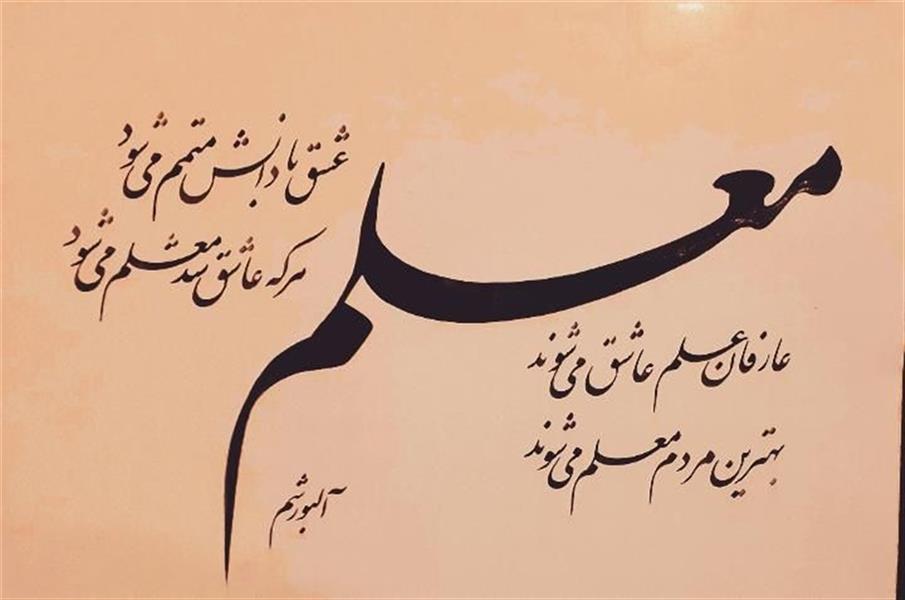 معلم
عارفان علم عاشق می شوند
بهترین مردم معلم می شوند
عشق با دانش متمم می شود
هر که عاشق شد معلم می شود